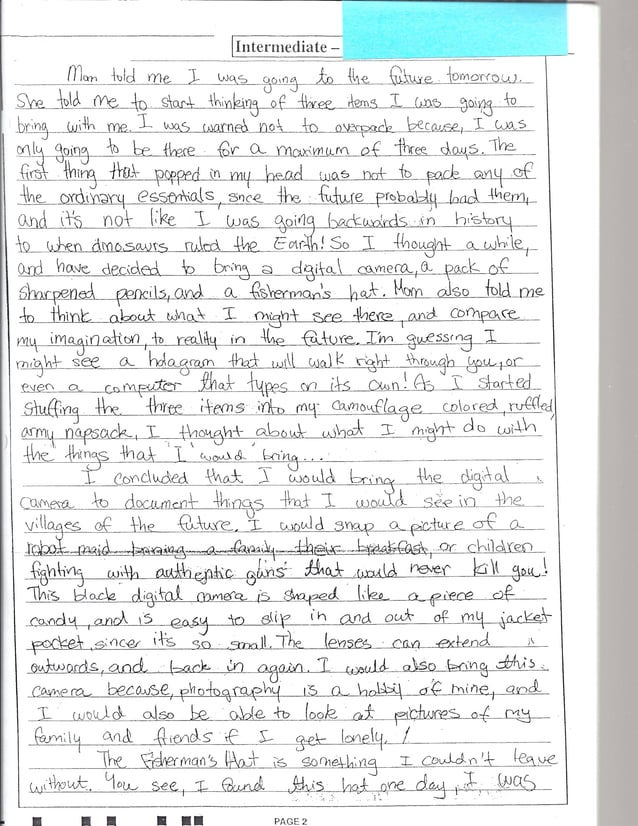 Intermediate –
Mom told me I was going to the future tomorrow.
She told me to start thinking of three items I was going to
bring with me. I was warned not to overpack because, I was
only going to be there for a maximum of three days. The
first thing that popped in my head was not to pack any of
the ordinary essentials, since the future probably had them,
and it's not like I was going backwards in history
to when dinosaurs ruled the Earth! So I thought a while,
and have decided to bring a digital camera, a pack of
sharpened pencils, and a fisherman's hat. Mom also told me
to think about what I might see there, and compare
my imagination, to reality in the future. I'm guessing I
might see a holagram that will walk right through you, or
even a computer that types on its own! As I started
stuffing the three items into my camouflage colored, ruffled,
army napsack, I thought about what I might do with
the things that I would bring...
I concluded that I would bring the digital
camera to document things that I would see in the
villages of the future. I would snap a picture of a
robot maid bringing a family their breakfast, or children
fighting with authentic guns that would never kill you!
This black digital camera is shaped like a piece of
candy, and is easy to slip in and out of my jacket
pocket, since it's so small. The lenses can extend
outwards, and back in again. I would also bring this
camera because, photography is a hobby of mine, and
I would also be able to look at pictures of my
family and friends if I get lonely.
The Fisherman's Hat is something I couldn't leave
without. You see, I found this hat one day, I was
PAGE 2